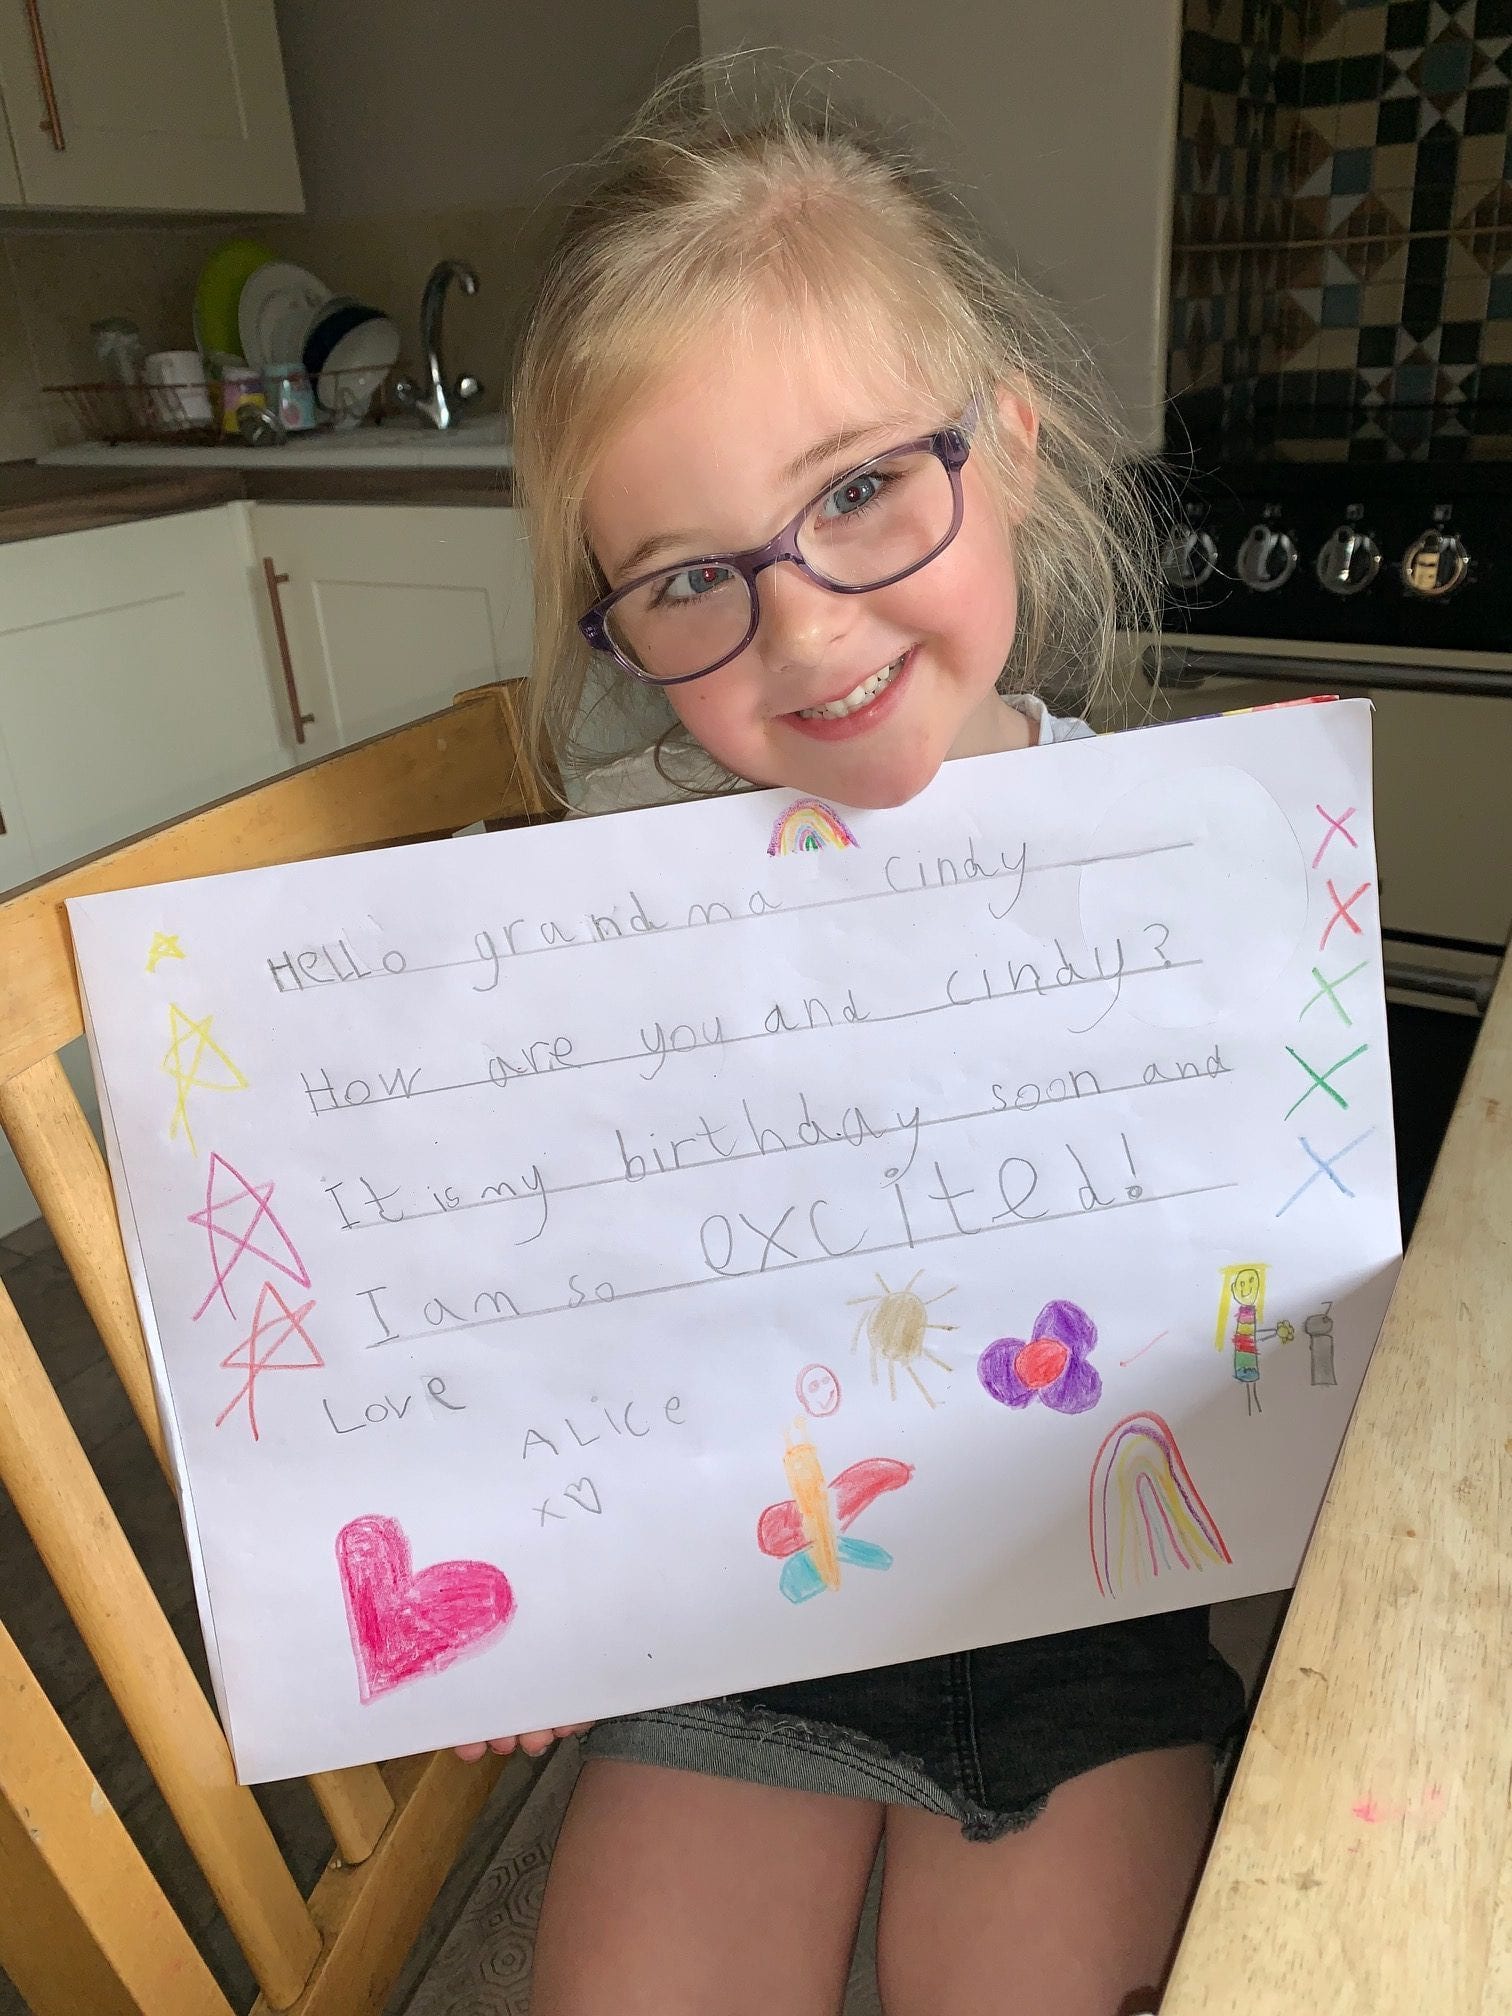 Hello grandma cindy
How are you and cindy?
It is my birthday soon and
I am so excited!
Love
ALice
x♡